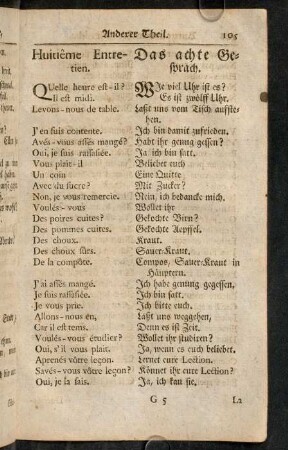 Anderer Theil. 105
Huitiême Entre-
tien.
Das achte Ge-
spräch.
Quelle heure est-il?
Wie viel Uhr ist es?
Il est midi.
Es ist zwölff Uhr.
Levons-nous de table.
Laßt uns vom Tisch auffste-
hen.
J'en suis contente.
Ich bin damit zufrieden.
Avés-vous assés mangé?
Habt ihr genug gessen?
Oui, je suis rassasiée.
Ja ich bin satt.
Vous plait-il
Beliebet euch
Un coin
Eine Quitte
Avec du sucre?
Mit Zucker?
Non, je vous remercie.
Nein, ich bedancke mich.
Voulés-vous
Wollet ihr
Des poires cuites?
Gekochte Birn?
Des pommes cuites.
Gekochte Aepffel.
Des choux.
Kraut.
Des choux sûrs.
Sauer-Kraut.
De la compûte.
Compos, Sauer-Kraut in
Häuptern.
J'ai assés mangé.
Ich habe genung gegessen.
Je suis rassasiée,
Ich bin satt.
Je vous prie.
Ich bitte euch.
Allons-nous en,
Laßt uns weggehen,
Car il est tems.
Denn es ist Zeit.
Voulés-vous étudier?
Wollet ihr studiren?
Oui, s'il vous plait.
Ja, wenn es euch beliebet.
Aprenés vôtre leçon.
Lernet eure Lection.
Savés-vous vôtre leçon?
Könnet ihr eure Lection?
Oui, je la sais.
Ja, ich kan sie.
G 5